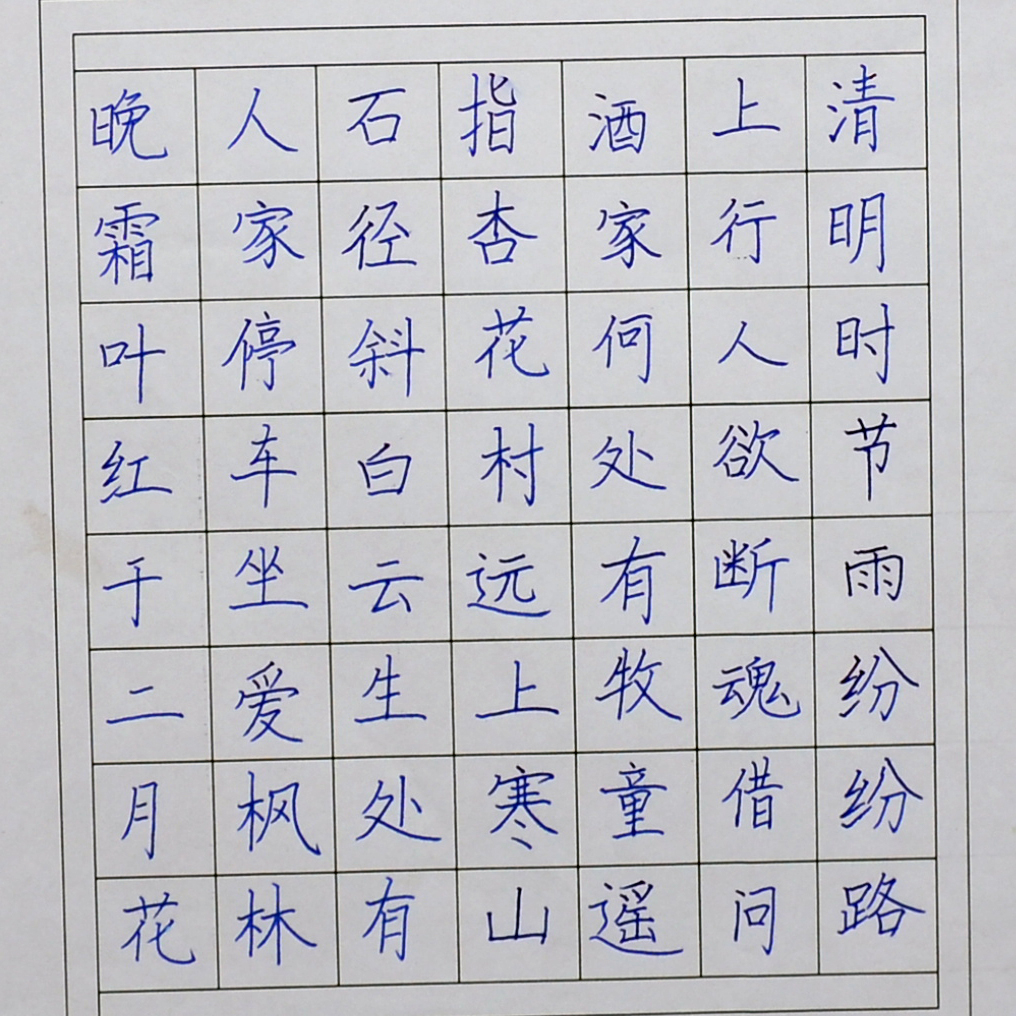 清明时节雨纷纷路
上行人欲断魂借问
酒家何处有牧童遥
指杏花村远上寒山
石径斜白云生处有
人家停车坐爱枫林
晚霜叶红于二月花